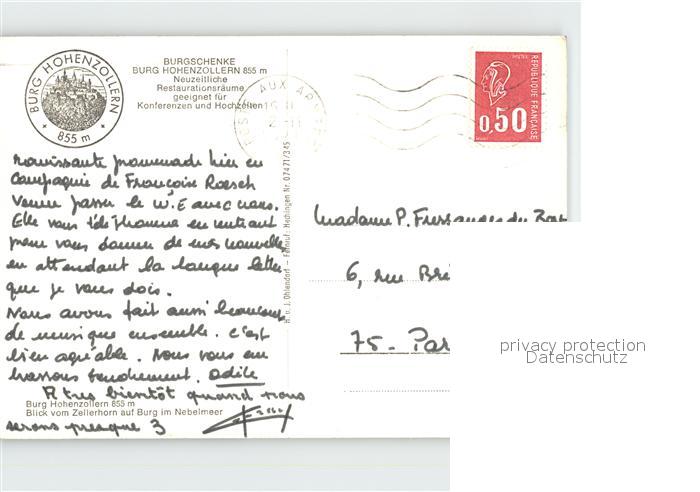 BURG HOHENZOLLERN
855 m
BURGSCHENKE
BURG HOHENZOLLERN 855 m
Neuzeitliche
Restaurationsräume
geeignet für
Konferenzen und Hochzeiten
POSTE AUX ARMEES
REPUBLIQUE FRANÇAISE
0,50
ravissante promenade hier en
compagnie de Françoise Roesch
venue passer le W.E avec nous.
Elle vous téléphonera en rentrant
pour vous donner de mes nouvelles
en attendant la longue lettre
que je vous dois.
Nous avons fait aussi beaucoup
de musique ensemble. C'est
bien agréable. Nous vous em
brassons tendrement. Odile
A très bientôt quand nous
serons presque 3
Burg Hohenzollern 855 m
Blick vom Zellerhorn auf Burg im Nebelmeer
H. u. J. Ohlendorf - Fernruf: Hechingen Nr. 07471/345
Madame P. du
6, rue
75 - Par
privacy protection
Datenschutz